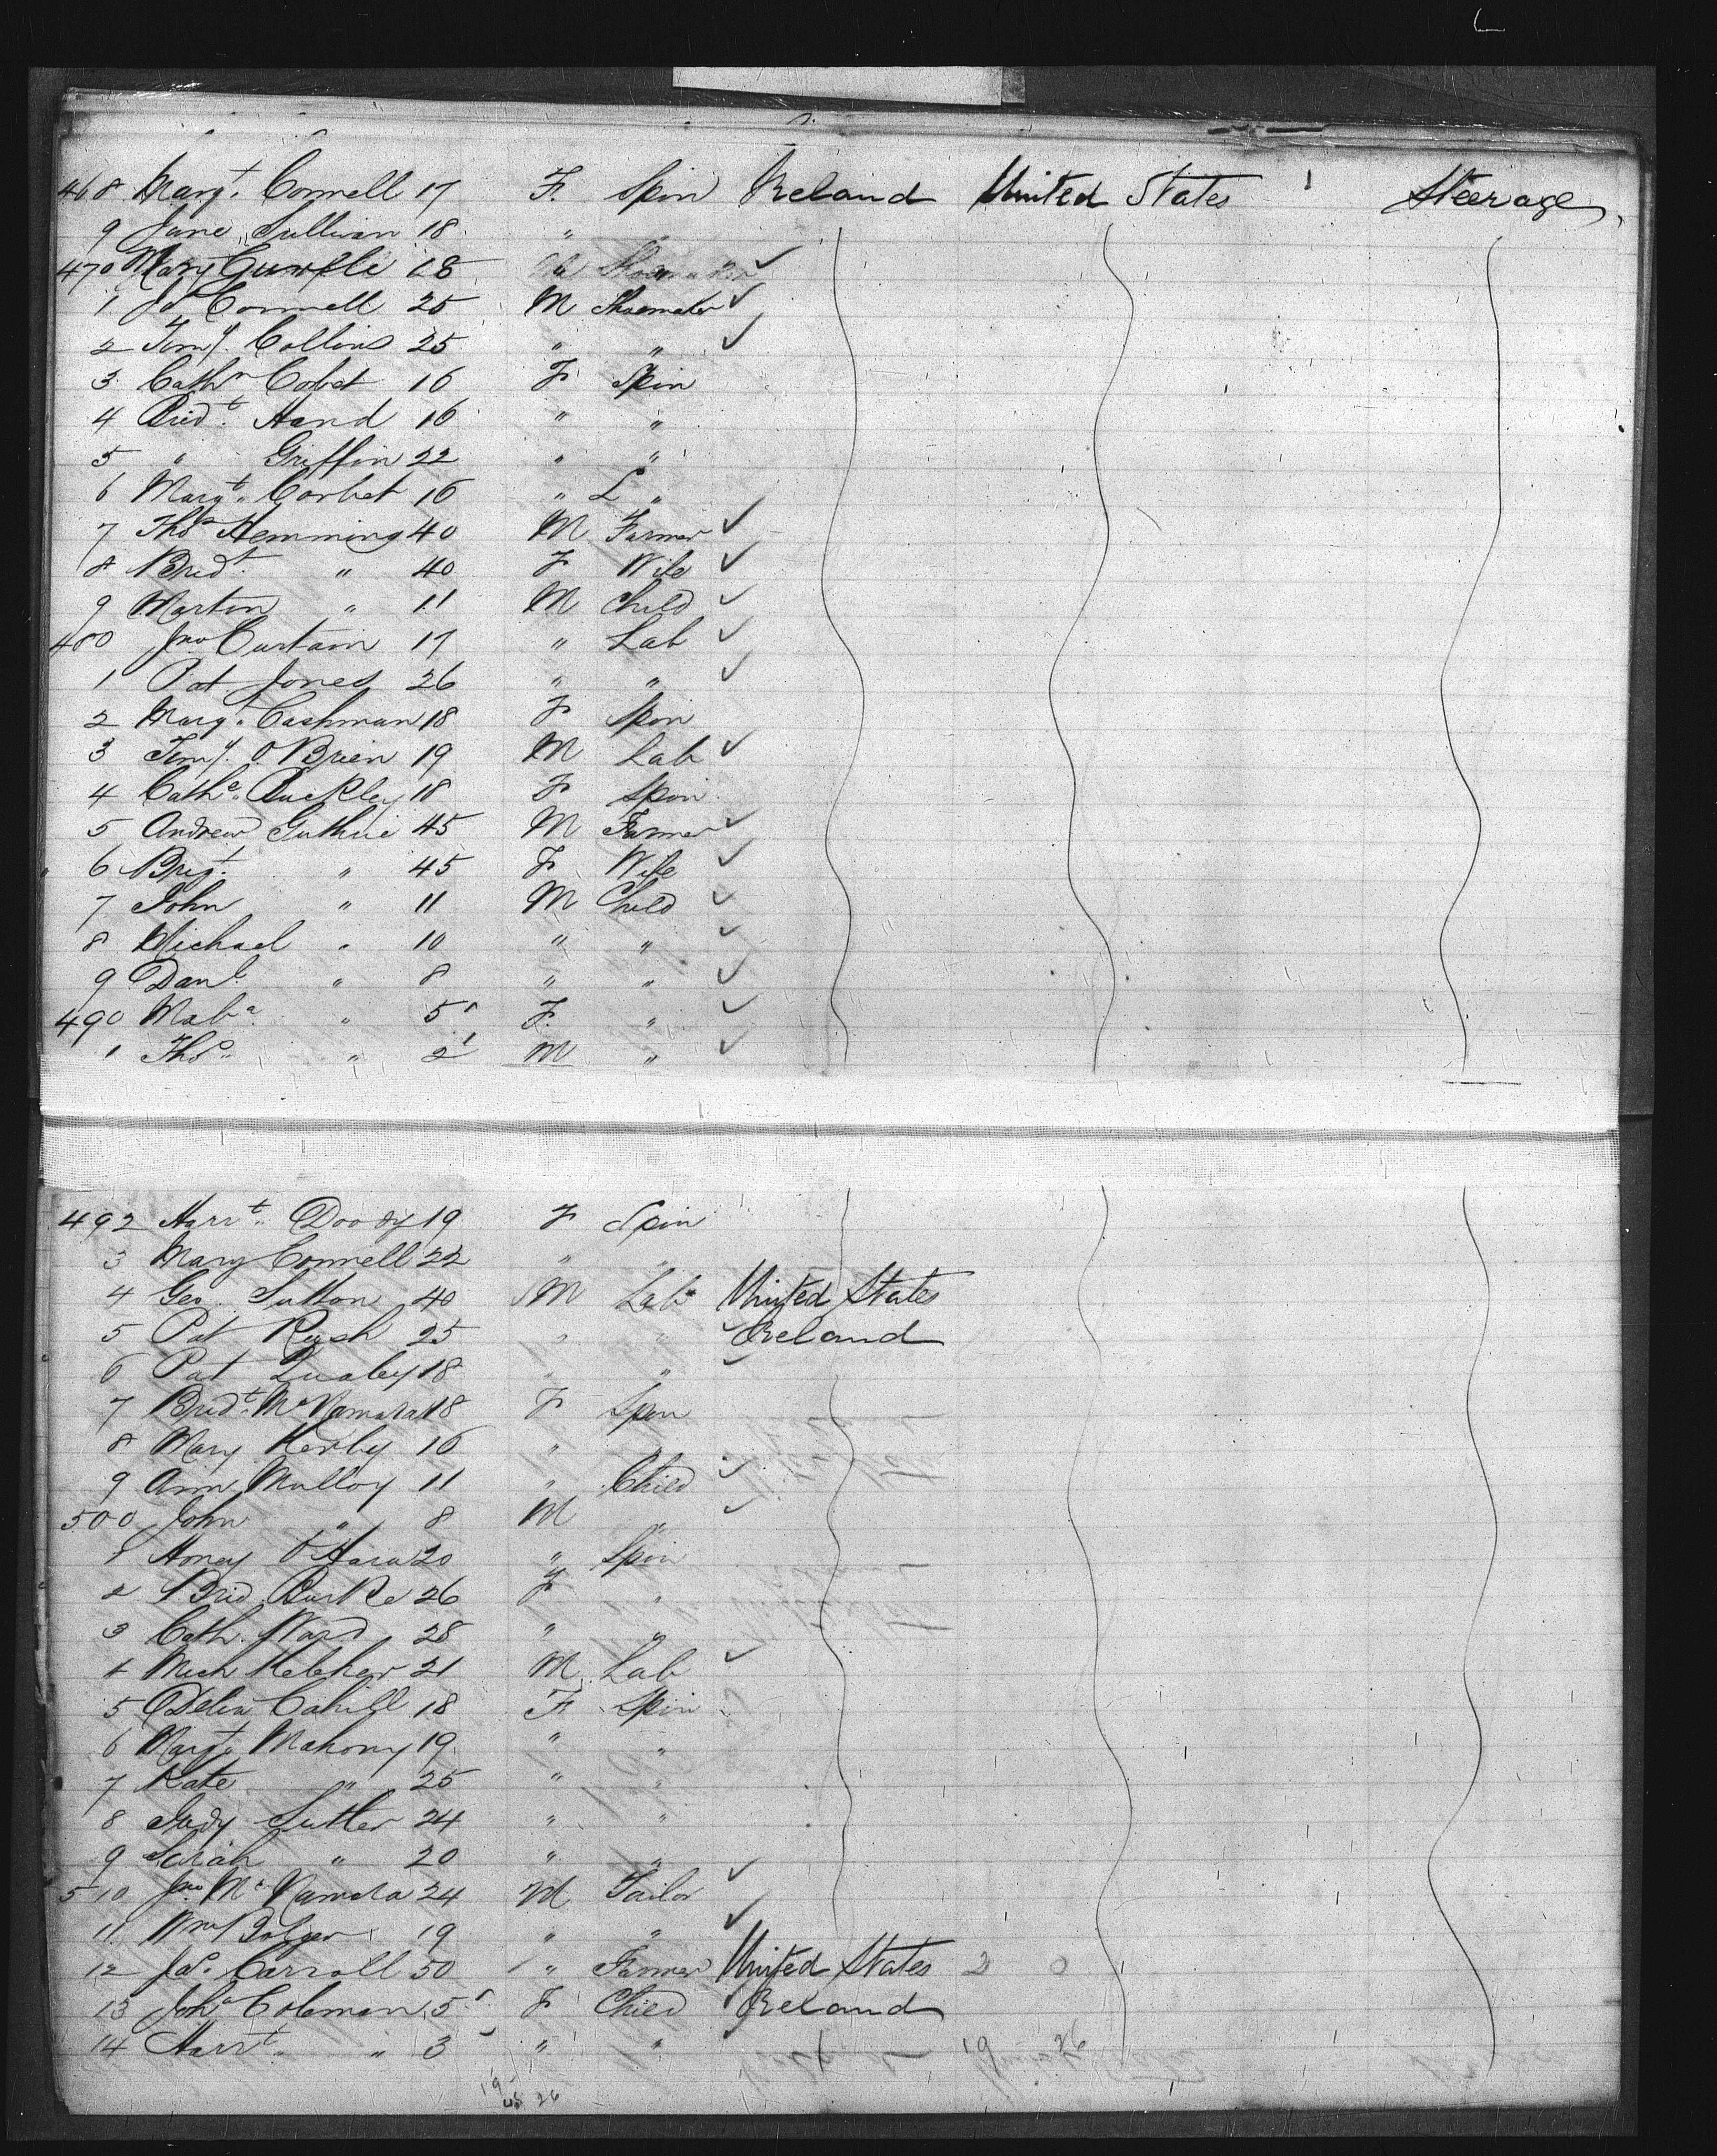 468 Margt. Connell 17 F. Spin Ireland United States Steerage
9 Jane Sullivan 18 "
470 Mary 18 Shoemaker ✓
1 Jas Connell 25 M Shoemaker ✓
2 Timy. Collins 25 " " ✓
3 Cathn Cobet 16 F Spin
4 Bridt. Hand 16 " "
5 " Griffin 22 " "
6 Margt. Corbet 16 " "
7 Thos Hemming 40 M Farmer ✓
8 Bridt. " 40 F Wife ✓
9 Martin " 11 M Child ✓
480 Jno Curtain 17 " Lab ✓
1 Pat Jones 26 " " ✓
2 Margt. Cashman 18 F Spin
3 Timy. O Brien 19 M Lab ✓
4 Cathe. Buckley 18 F Spin
5 Andrew Guthrie 45 M Farmer ✓
6 Brigt. " 45 F Wife ✓
7 John " 11 M Child ✓
8 Michael " 10 " " ✓
9 Danl. " 8 " " ✓
490 " 5 F. " ✓
1 Thos. " 2 M " ✓
492 Harrt. Doody 19 F Spin
3 Mary Connell 22 " "
4 Geo. Sutton 40 M Lab United States
5 Pat Rush 25 " " ✓ Ireland
6 Pat 18 " " ✓
7 Bridt. McNamara 18 F Spin
8 Mary Kerby 16 "
9 Ann Malloy 11 " Child ✓
500 John " 8 M " ✓
1 Honey O'Hara 20 " Spin
2 Brid Burke 26 F "
3 Cath. Ward 28 " "
4 Mich Keleher 21 M Lab ✓
5 Delia Cahill 18 F Spin
6 Margt. Mahony 19 " "
7 Kate " 25 " "
8 Judy Sutter 24 " "
9 Sarah " 20 " "
510 Jno. McNamara 24 M Tailor ✓
11 Wm Bolger 19 " " ✓
12 Jas. Carroll 50 " Farmer United States 2 0
13 Joha Coleman 5 F Child ✓ Ireland
14 Harrt. " 3 " " 19 26
19
26